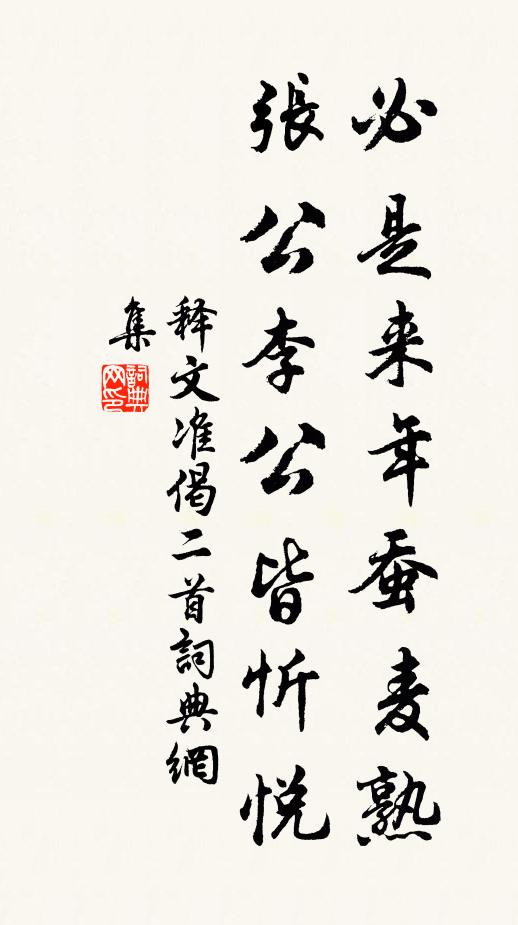 必是来年蚕麦熟
張公李公皆忻悦
释文准偈二首詞典網
集
詞典
网印